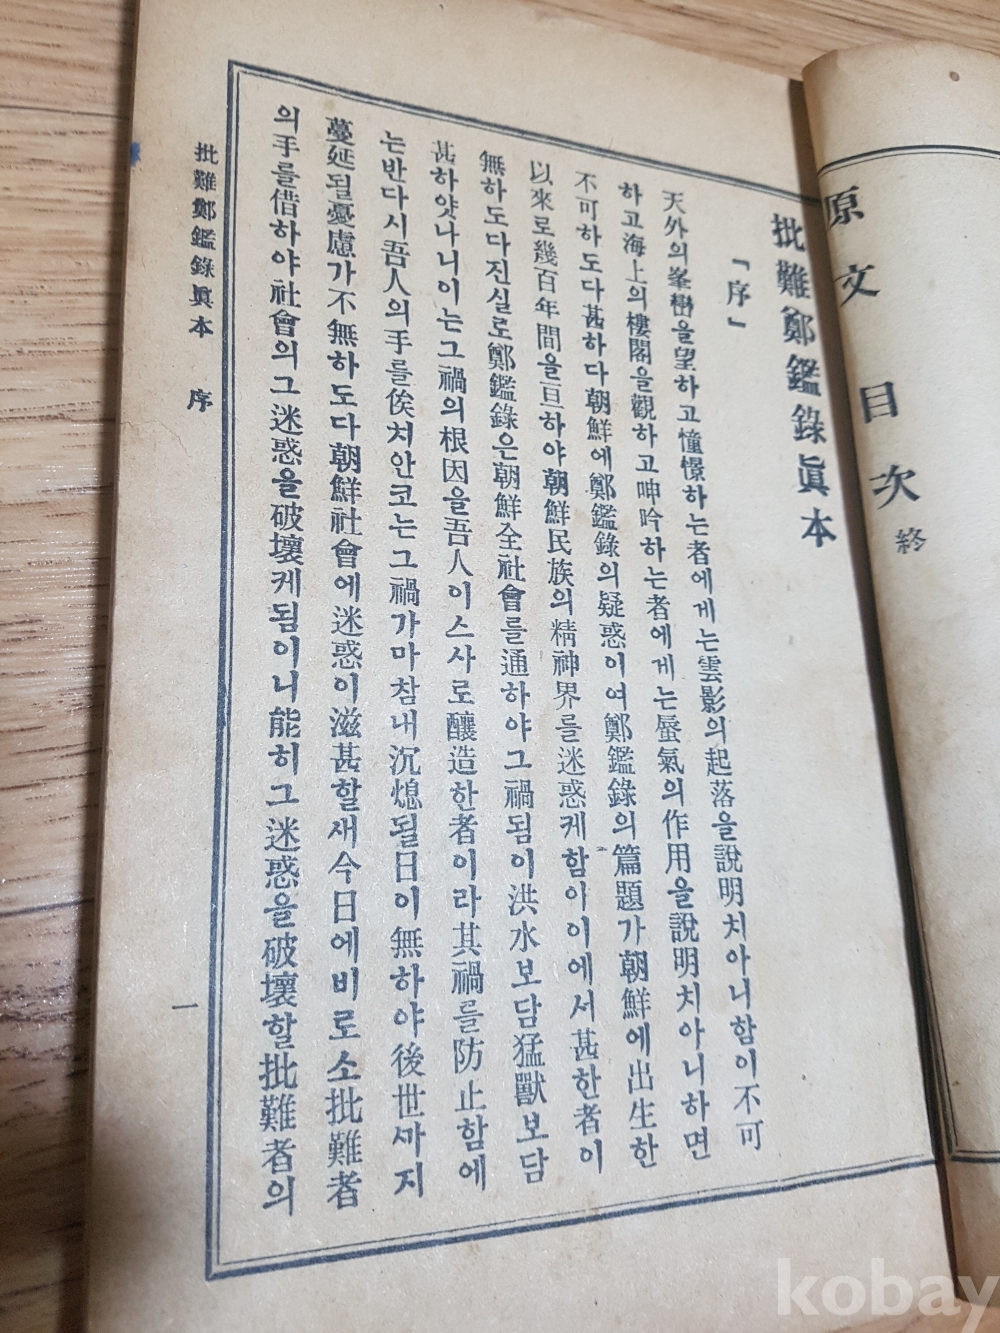 原文目次 終
批難鄭鑑錄眞本
「序」
天外의峯巒을望하고憧憬하는者에게는雲影의起落을說明치아니함이不可
하고海上의樓閣을觀하고呻吟하는者에게는蜃氣의作用을說明치아니하면
不可하도다甚하다朝鮮에鄭鑑錄의疑惑이여鄭鑑錄의篇題가朝鮮에出生한
以來로幾百年間을亘하야朝鮮民族의精神界를迷惑케함아이에서甚한者이
無하도다진실로鄭鑑錄은朝鮮全社會를通하야그禍됨이洪水보담猛獸보담
甚하얏나니이는그禍의根因을吾人이스사로釀造한者이라其禍를防止함에
는반다시吾人의手를俟치안코는그禍가마참내沉熄될日이無하야後世까지
蔓延될憂慮가不無하도다朝鮮社會에迷惑이滋甚할새今日에비로소批難者
의手를借하야社會의그迷惑을破壞케됨이니能히그迷惑을破壞할批難者의
批難鄭鑑錄眞本 序
一
kobay